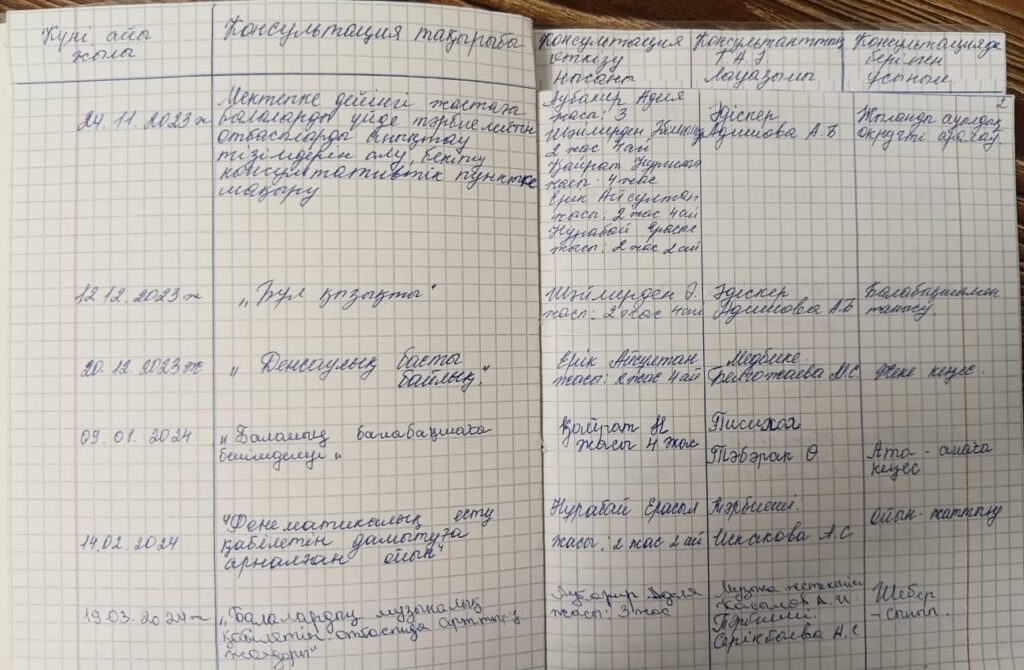 Күні айы
жылы
Консультация тақырыбы
Консультация
өткізу
нысаны
Консультанттың
Т.А.Ә.
Лауазымы
Консультацияда
берілген
ұсыныс.
2
24.11.2023ж
Мектепке дейінгі жастағы
балаларды үйде тәрбиелейтін
отбасыларды анықтау
тізімдерін алу, бекіту
консультативтік пунктке
шақыру
Аубакир Аделя
жасы: 3
Шәймерден
2 жас 4 ай
Қайрат
жасы: 4 жас
Ерік Айсултан
жасы: 2 жас 4 ай
Нурабай Ерасыл
жасы: 2 жас 2 ай
Әдіскер
Адишова А.Б
ауылдық
округті аралау.
12.12.2023ж
"Бұл қызықты"
Шәймерден Ә.
жасы: 2 жас 4 ай
Әдіскер
Адишова А.Б
Балабақшамен
танысу.
20.12.2023ж
"Денсаулық басты
байлық."
Ерік Айсултан
жасы: 2 жас 4 ай
Медбике.
М.С
Жеке кеңес.
09.01.2024
"Баланың балабақшаға
бейімделуі"
Қайрат Н
жасы 4 жас
Писихол
Тәберак Ө
Ата-анаға
кеңес
14.02.2024
"Фонематикалық есту
қабілетін дамытуға
арналған ойын"
Нурабай Ерасыл
жасы: 2 жас 2 ай
Тәрбиеші.
Искакова А.С
Ойын-жаттығу
19.03.2024ж
"Балалардың музыкалық
қабілетін отбасында арттыру
жолдары"
Аубакир Аделя
жасы: 3 жас
Музыка жетекшісі
Касымов А.И.
Тәрбиеші.
Серікбаева А.С
Шебер
-сынып.